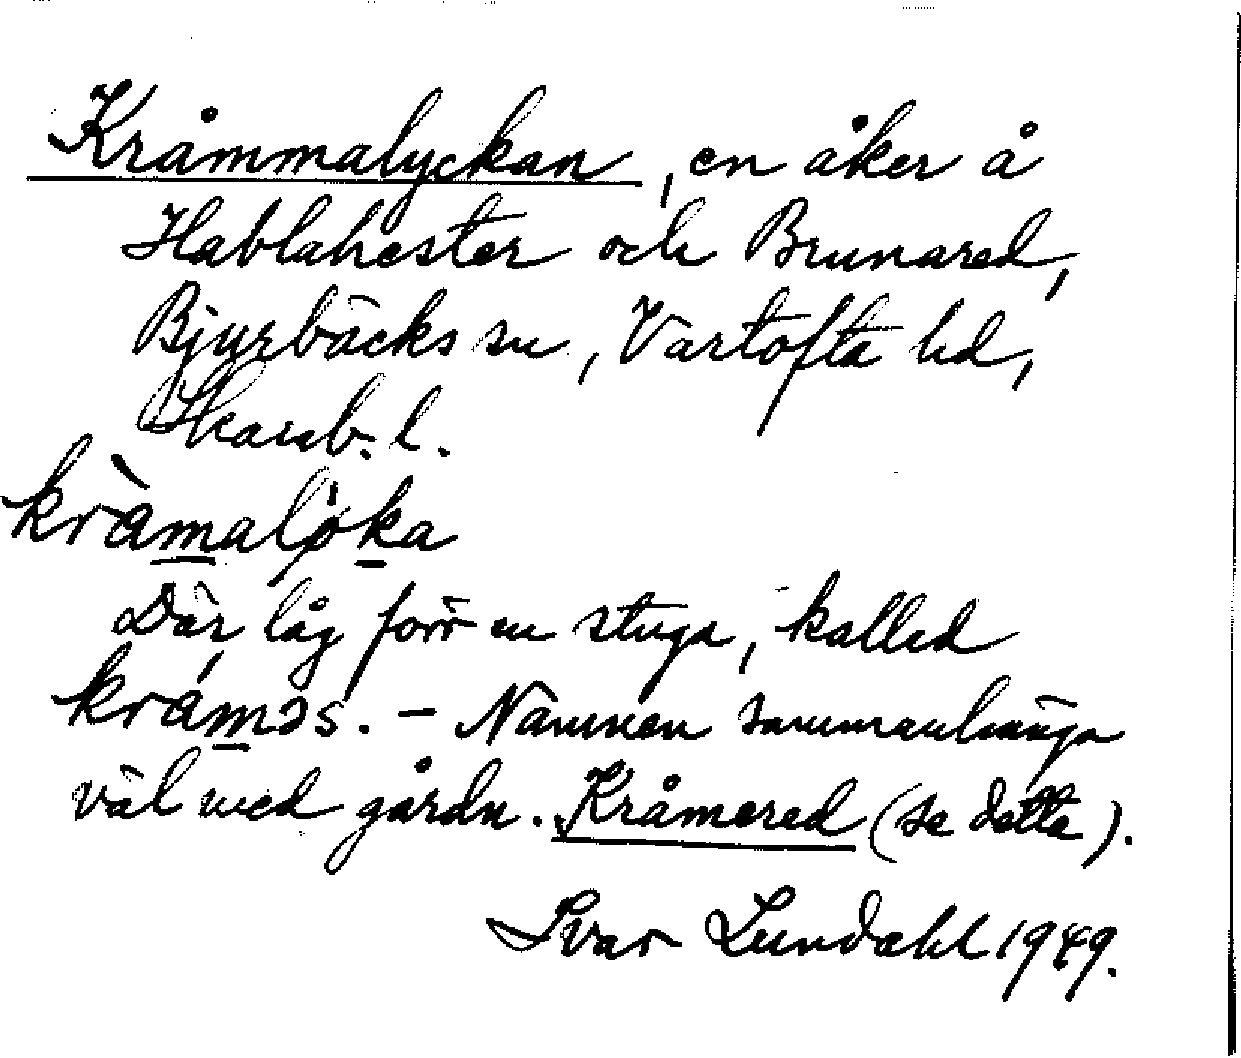 Kråmmalyckan, en åker å
Hablahester och Brunared,
Bjurbäcks sn, Vartofta hd,
Skarab. l.
kràmaløka
Där låg förr en stuga, kallad
kráməs. – Namnen sammanhänga
väl med gårdn. Kråmered (se detta).
Ivar Lundahl 1949.